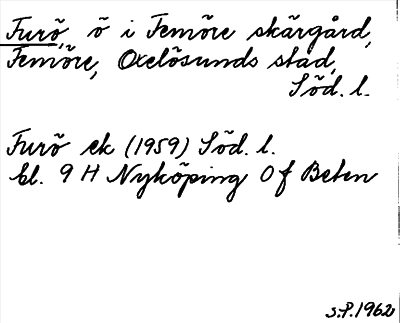 Furö, ö i Femöre skärgård,
Femöre, Oxelösunds stad,
Söd. l.
Furö ek (1959) Söd. l.
bl. 9 H Nyköping Of Beten
S.P. 1962